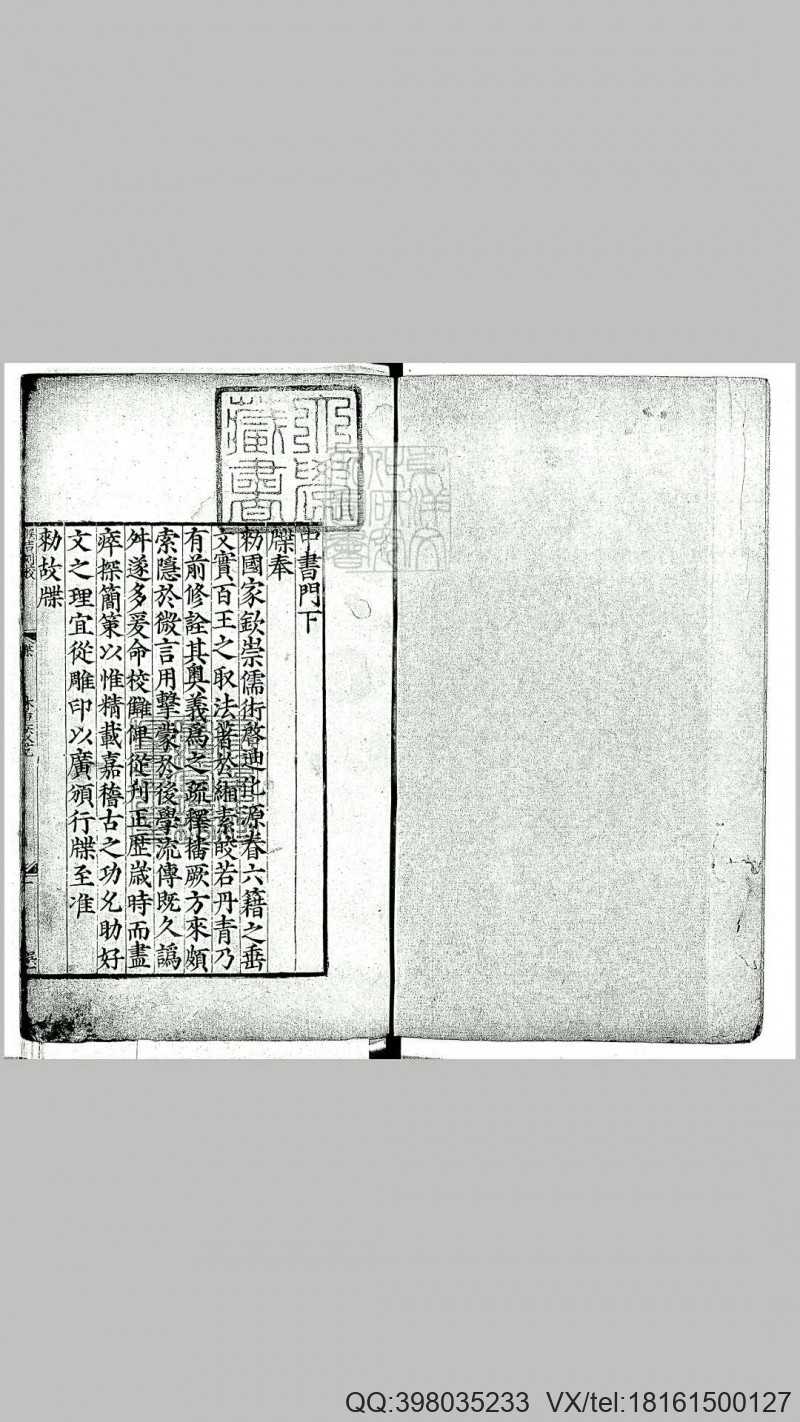 中書門下
牒奉
勑國家欽崇儒術啓迪化源眷六籍之垂
文實百王之取法著於緗素皎若丹青乃
有前修詮其奧義爲之疏釋播厥方來頗
索隱於微言用擊蒙於後學流傳既久譌
舛遂多爰命校讎俾從刋正歷歲時而盡
瘁探簡策以惟精載嘉稽古之功允助好
文之理宜從雕印以廣頒行牒至准
勑故牒
藏書
QQ:398035233 VX/tel:18161500127